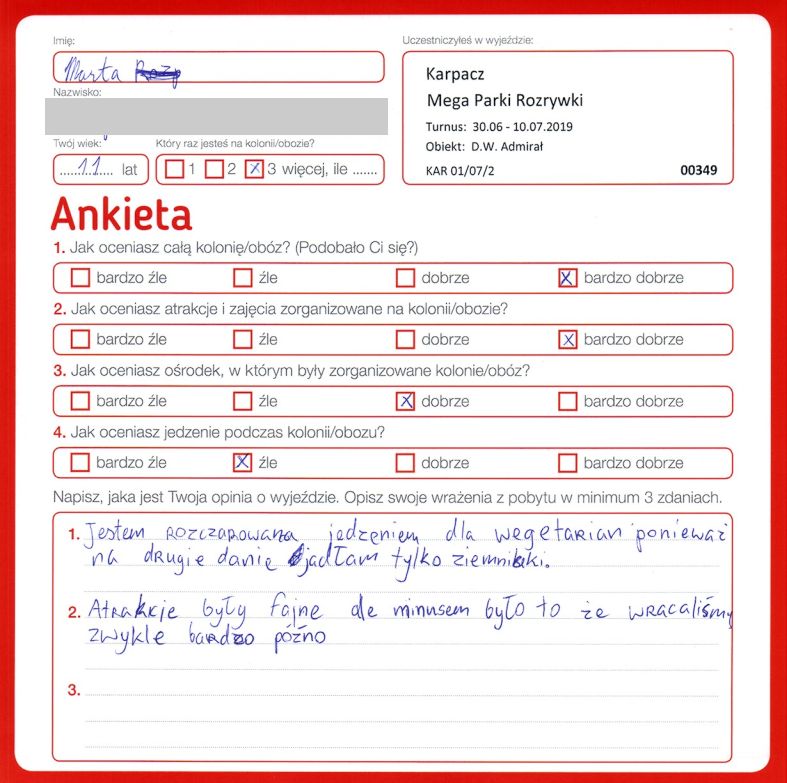 Imię:
Uczestniczyłeś w wyjeździe:
Marta
Karpacz
Mega Parki Rozrywki
Nazwisko:
Turnus: 30.06 - 10.07.2019
Obiekt: D.W. Admirał
KAR 01/07/2 00349
Twój wiek: Który raz jesteś na kolonii/obozie?
11 lat 1 2 X 3 więcej, ile .......
Ankieta
1. Jak oceniasz całą kolonię/obóz? (Podobało Ci się?)
bardzo źle źle dobrze X bardzo dobrze
2. Jak oceniasz atrakcje i zajęcia zorganizowane na kolonii/obozie?
bardzo źle źle dobrze X bardzo dobrze
3. Jak oceniasz ośrodek, w którym były zorganizowane kolonie/obóz?
bardzo źle źle X dobrze bardzo dobrze
4. Jak oceniasz jedzenie podczas kolonii/obozu?
bardzo źle X źle dobrze bardzo dobrze
Napisz, jaka jest Twoja opinia o wyjeździe. Opisz swoje wrażenia z pobytu w minimum 3 zdaniach.
1. Jestem rozczarowana jedzeniem dla wegetarian ponieważ
na drugie danie jadłam tylko ziemniaki.
2. Atrakcje były fajne ale minusem było to że wracaliśmy
zwykle bardzo późno
3.